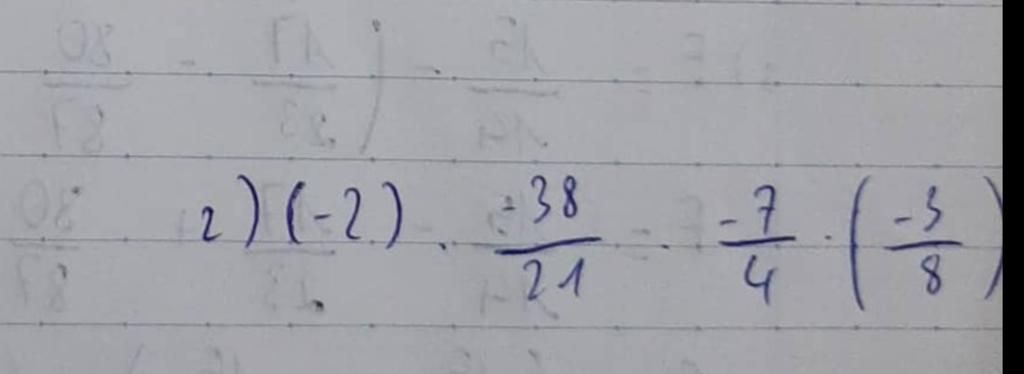 2) (-2) . -38/21 . -7/4 . (-3/8)